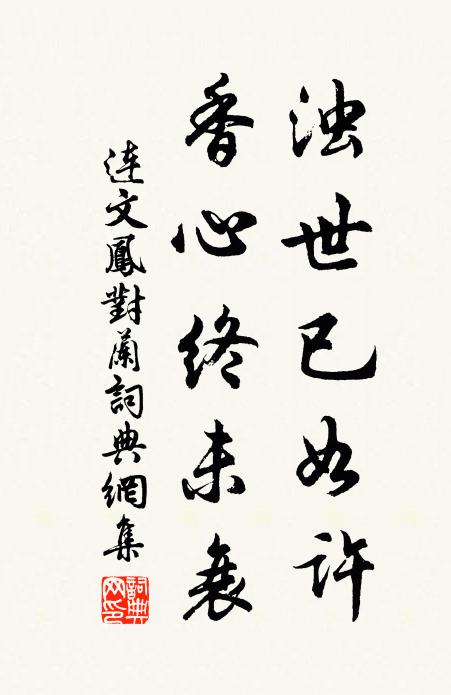 浊世已如许
香心终未衰
連文鳳對蘭詞典網集
詞典
网印